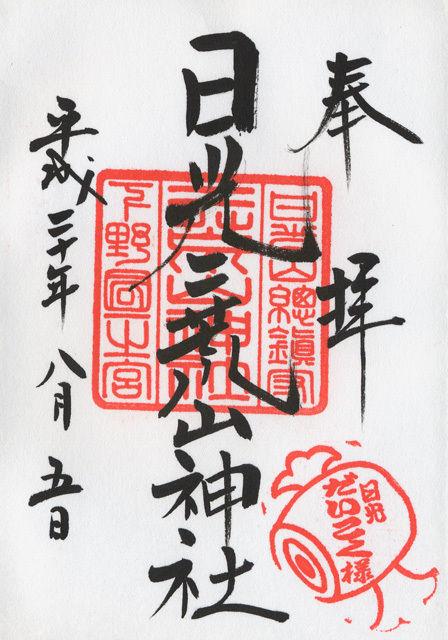 奉拝
日光二荒山神社
平成二十年八月五日
日光山總鎮守
二荒山神社
下野國一宮
日光
だいこく様